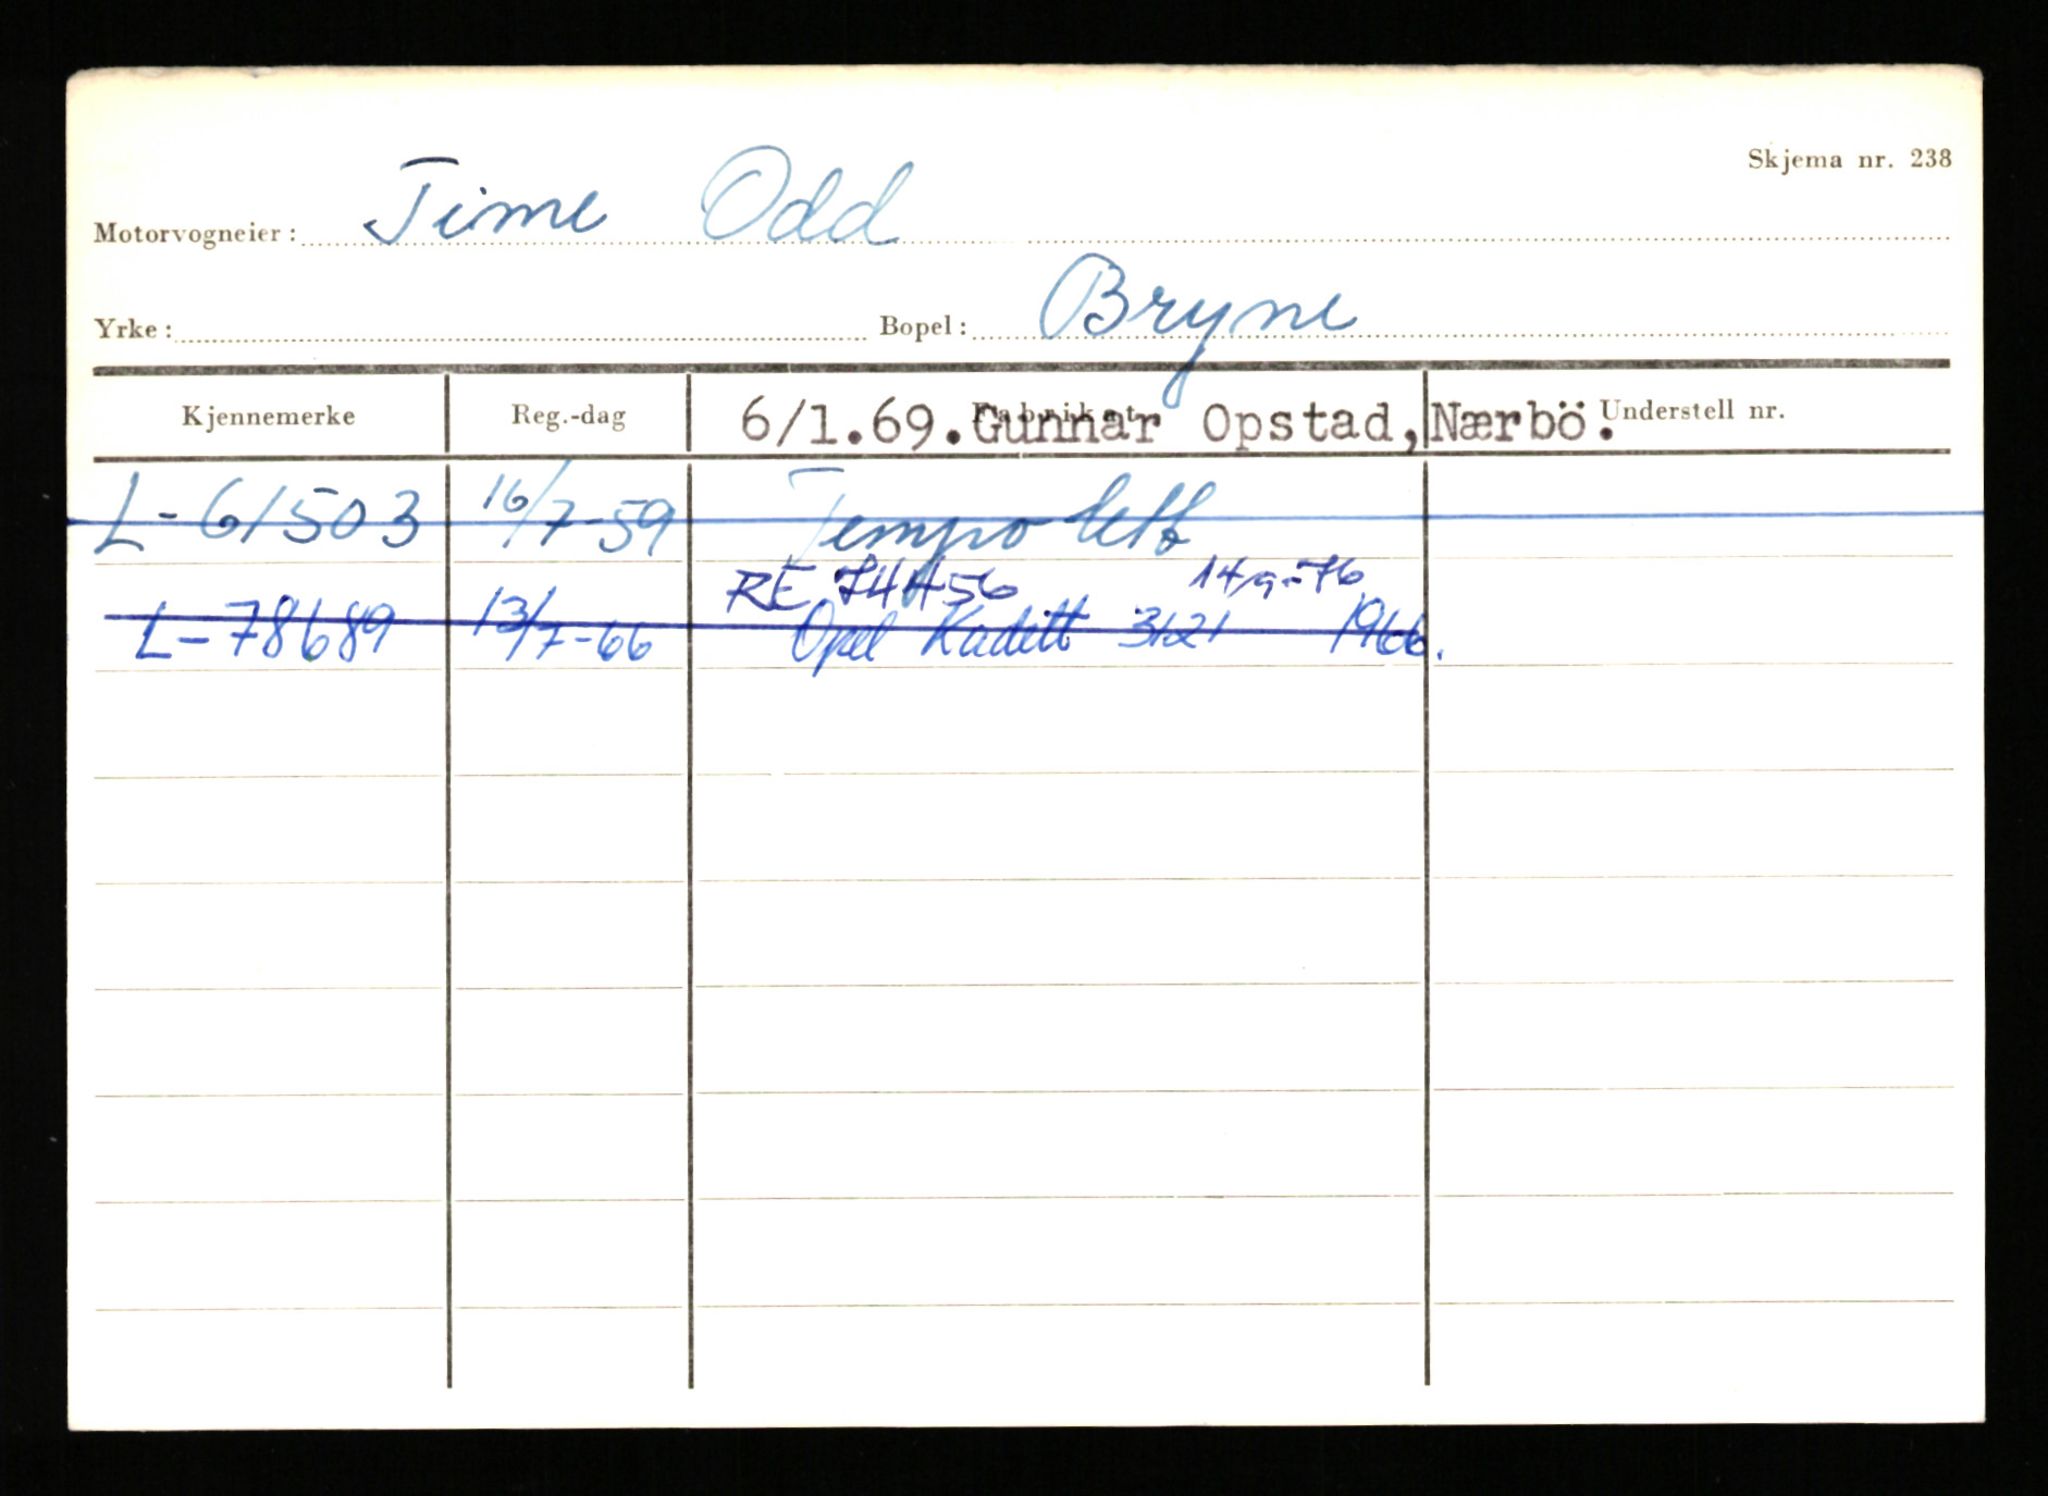 Skjema nr. 238
Motorvogneier: Time Odd
Yrke: Bopel: Bryne
Kjennemerke Reg.-dag Fabrikat Understell nr.
6/1.69.Gunnar Opstad, Nærbö.
L-61503 16/7-59 Tempo lett
RE 74456 14/9-76
L-78689 13/7-66 Opel Kadett 3121 1966.